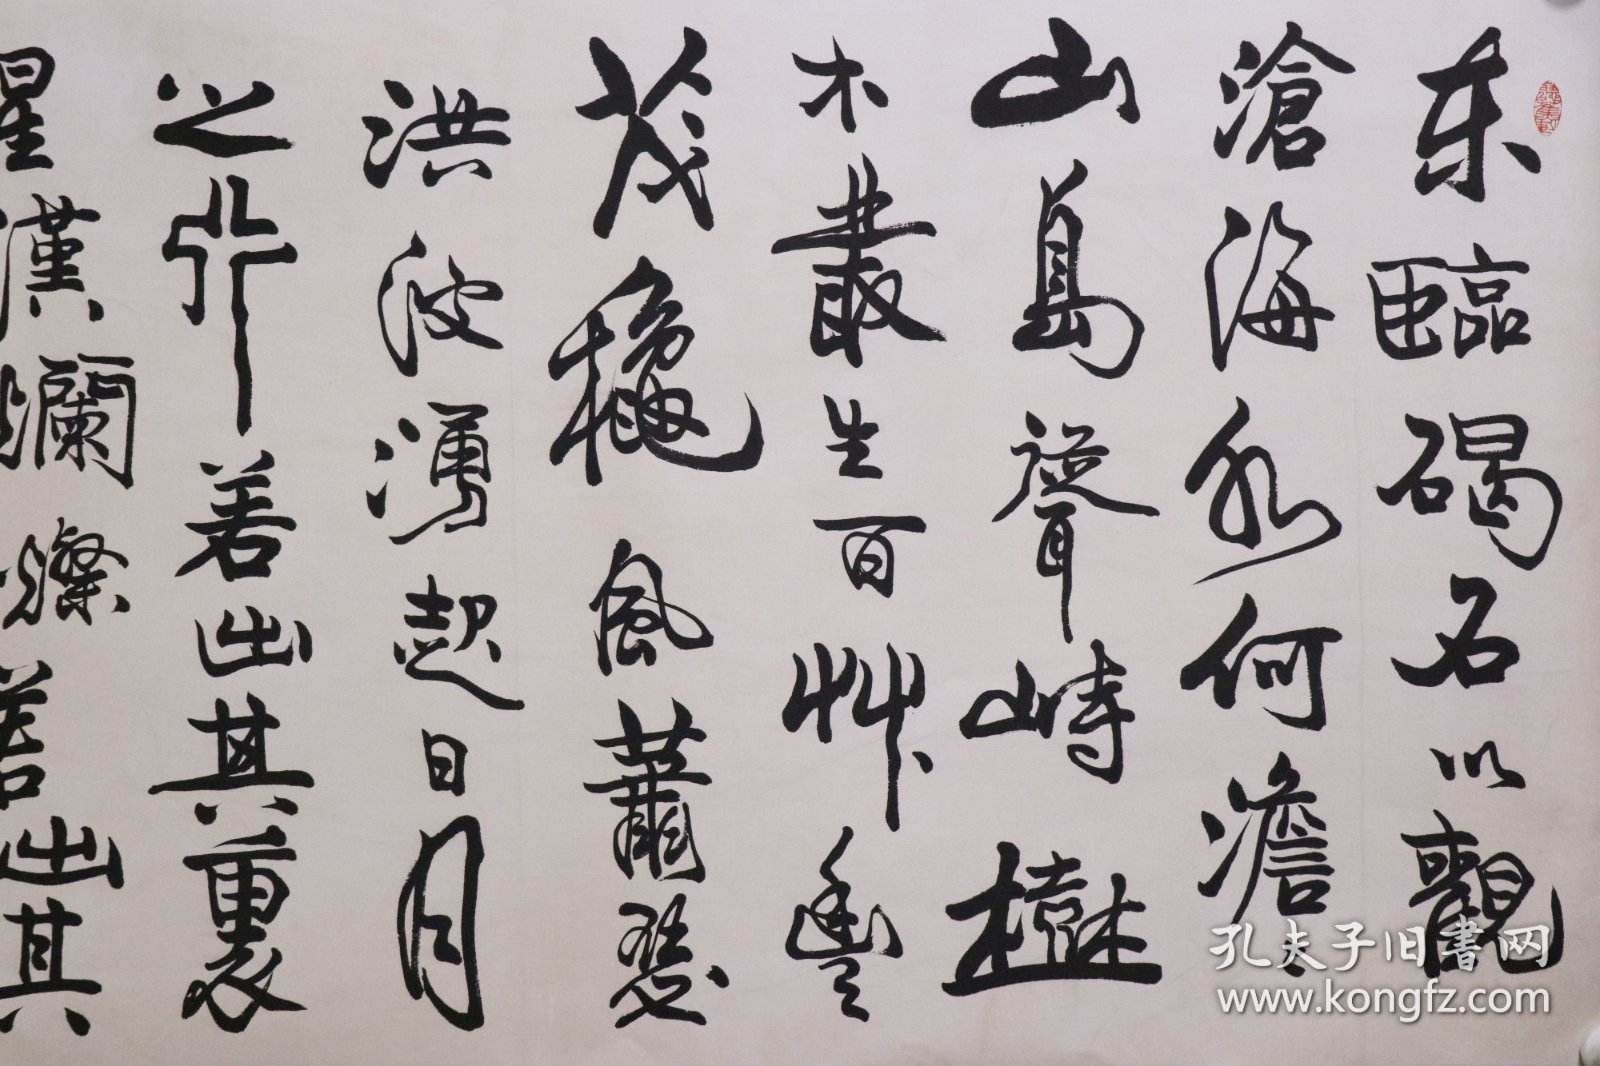 东臨碣石以觀
滄海水何澹〻
山島聳峙樹
木叢生百艸豐
茂龝風蕭瑟
洪波湧起日月
之行若出其裏
星漢爛燦若出其
孔夫子旧書网
www.kongfz.com